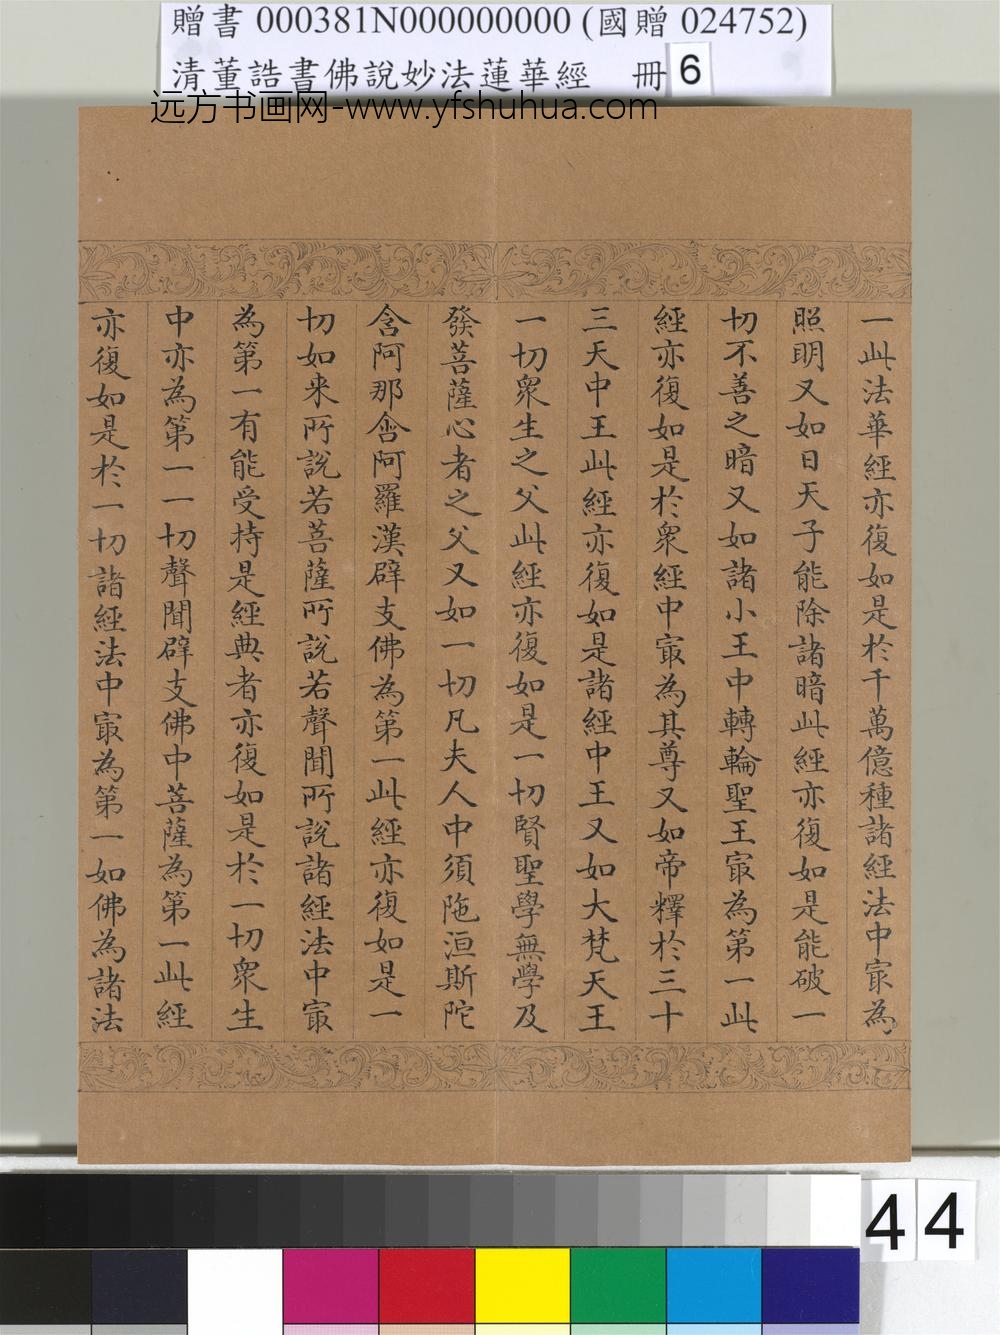 贈書 000381N000000000 (國贈 024752)
清董誥書佛說妙法蓮華經 冊 6
远方书画网-www.yfshuhua.com
一此法華經亦復如是於千萬億種諸經法中㝡為
照明又如日天子能除諸暗此經亦復如是能破一
切不善之暗又如諸小王中轉輪聖王㝡為第一此
經亦復如是於眾經中㝡為其尊又如帝釋於三十
三天中王此經亦復如是諸經中王又如大梵天王
一切眾生之父此經亦復如是一切賢聖學無學及
發菩薩心者之父又如一切凡夫人中須陁洹斯陀
含阿那含阿羅漢辟支佛為第一此經亦復如是一
切如来所說若菩薩所說若聲聞所說諸經法中㝡
為第一有能受持是經典者亦復如是於一切眾生
中亦為第一一切聲聞辟支佛中菩薩為第一此經
亦復如是於一切諸經法中㝡為第一如佛為諸法
44